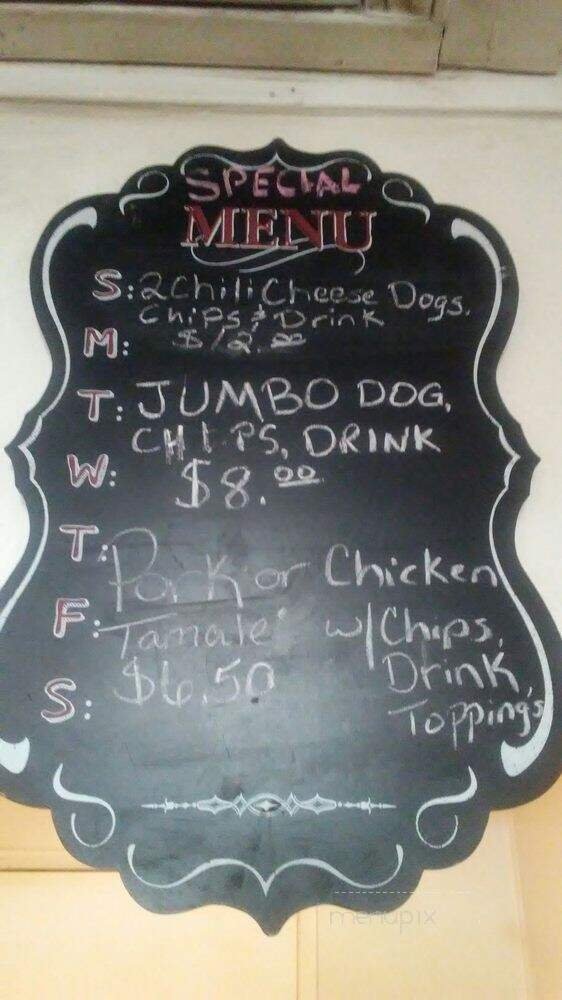 SPECIAL
MENU
S: 2 Chili Cheese Dogs,
Chips & Drink
M: $12.00
T: JUMBO DOG,
CHIPS, DRINK
W: $8.00
T: Pork or Chicken
F: Tamale w/Chips,
S: $6.50 Drink,
Topping's
menupix